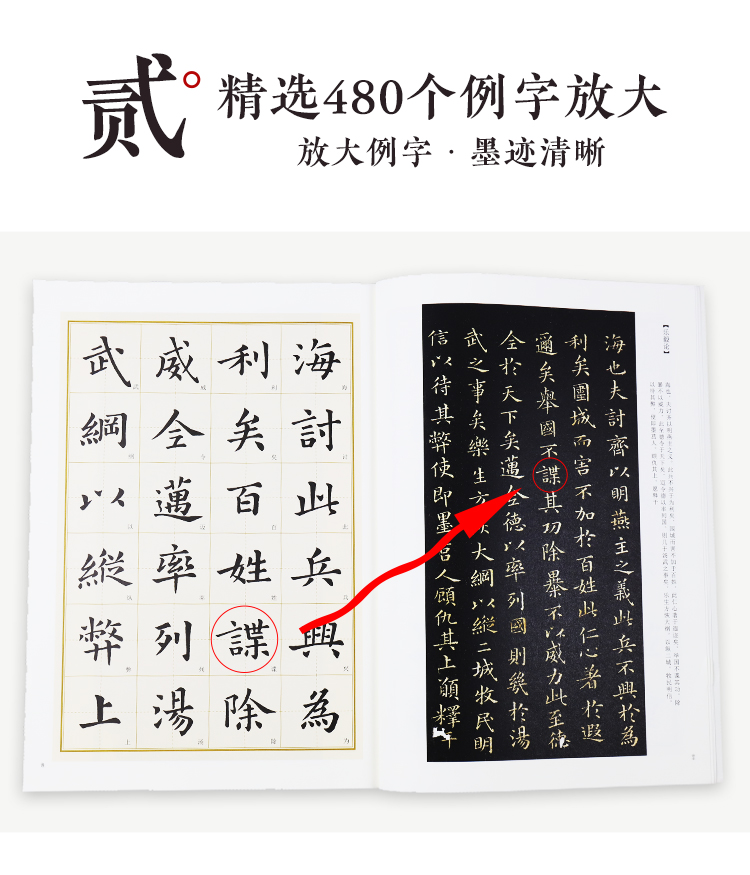 贰°
精选480个例字放大
放大例字 · 墨迹清晰
海討此兵興為
利矣百姓諜除
威全邁率列湯
武綱以縱弊上
【乐毅论】
海也夫討齊以明燕主之義此兵不興於為
利矣圍城而害不加於百姓此仁心著於遐
邇矣舉國不諜其功除暴不以威力此至德
全於天下矣邁全德以率列國則幾於湯
武之事矣樂生方大綱以縱二城牧民明
信以待其弊使即墨莒人顧仇其上願釋干